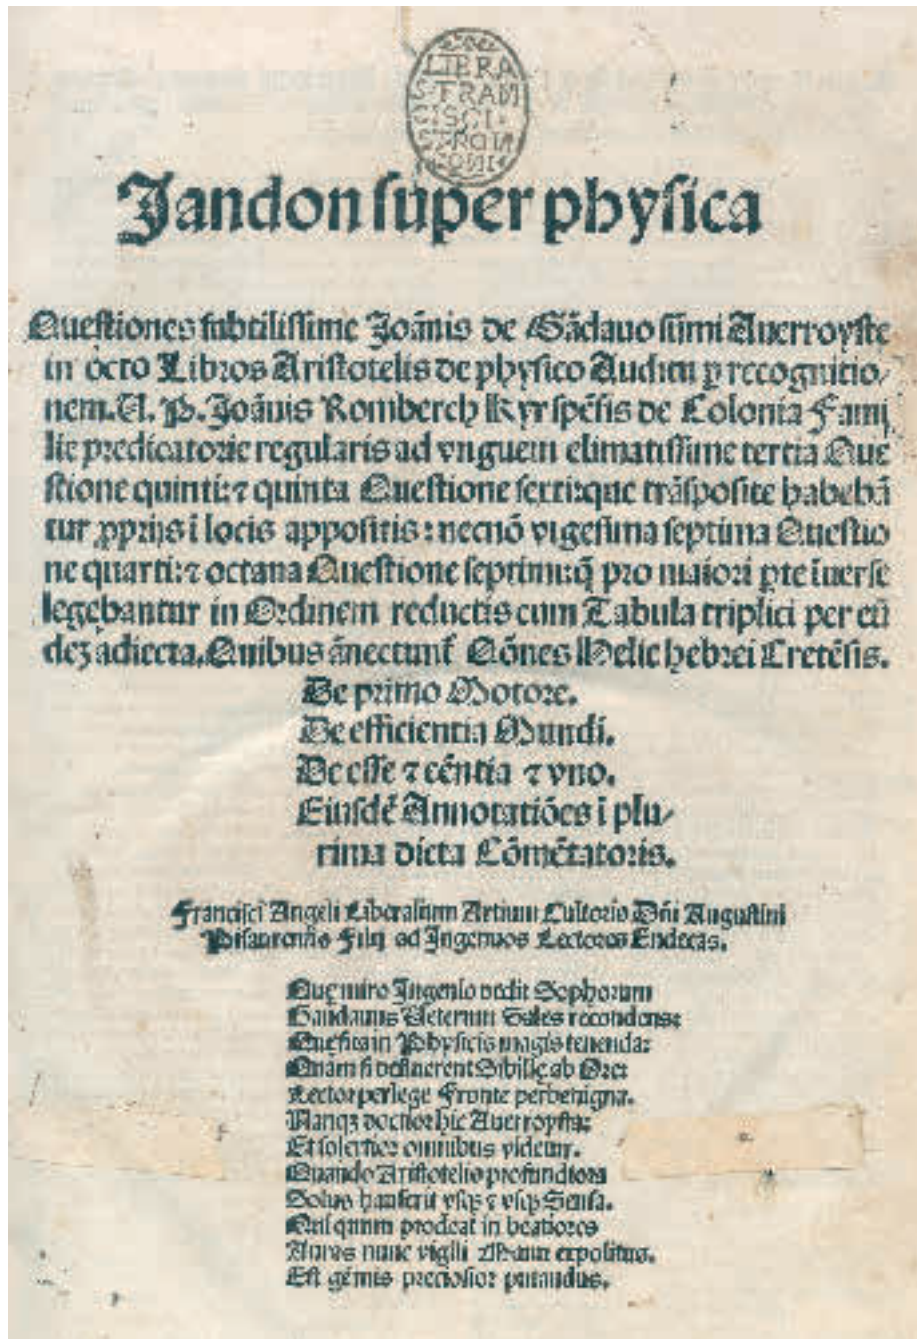 LIBERA
Jandon super physica
Questiones subtilissime Joānis de Gādauo sūmi Aueroyste
in octo Libros Aristotelis de physico Auditu ꝑ recognitio/
nem. A. P. Joānis Romberch Kyrspēsis de Colonia Fami
lie predicatorie regularis ad vnguem elimatissime tertia Que
stione quinti: ⁊ quinta Questione sexti: que trāsposite habebā
tur ꝓprijs ī locis appositis: necnō vigesima septima Questio
ne quarti: ⁊ octaua Questione septimi: q̄ pro maiori ꝑte īuerse
legebantur in Ordinem reductis cum Tabula triplici per eū
deꝫ adiecta. Quibus ānectunt᷑ Qōnes Helie hebrei Cretēsis.
De primo Motore.
De efficientia Mundi.
De esse ⁊ eēntia ⁊ vno.
Eiusdē Annotatiōes ī plu/
rima dicta Cōmētatoris.
Francisci Angeli Liberalium Artium Cultoris Dñi Augustini
Pisaurensis Filij ad Ingenuos Lectores Endecas.
Quę miro Ingenio dedit Sophorum
Gandauus Veterum Sales recondens:
Quesita in Physicis magis tenenda:
Quam si defluerent Sibillę ab Ore:
Lector perlege Fronte perbenigna.
Nanqꝫ doctior hic Auerroysta:
Et solertior omnibus videtur.
Quando Aristotelis profundiora
Solus hauserit vsqꝫ ⁊ vsqꝫ Sensa.
Qui quum prodeat in beatiores
Auras nunc vigili Manu expolitus.
Est gēmis preciosior putandus.